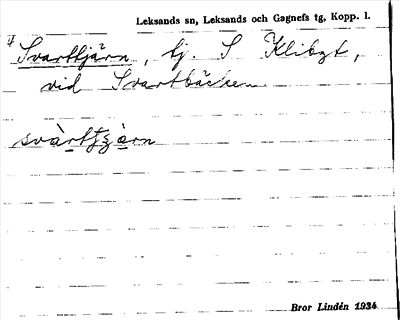 Leksands sn, Leksands och Gagnefs tg, Kopp. l.
Svarttjärn, tj. S Klibgt,
vid Svartbäcken
Bror Lindén 1934